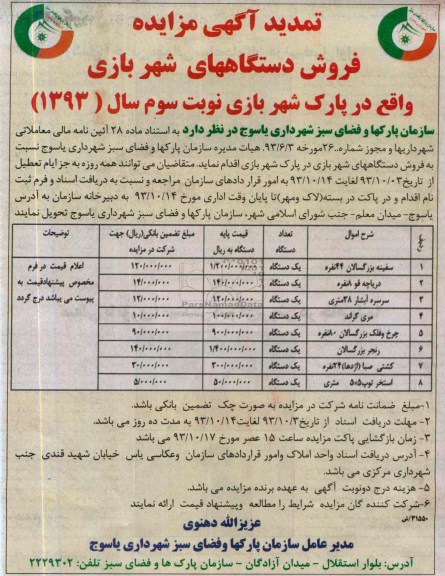 تمدید آگهی مزایده
فروش دستگاههای شهر بازی
واقع در پارک شهر بازی نوبت سوم سال (۱۳۹۳)
سازمان پارکها و فضای سبز شهرداری یاسوج در نظر دارد به استناد ماده ۲۸ آئین نامه مالی معاملاتی
شهرداریها و مجوز شماره..۲۶مورخه ۹۳/۶/۳ هیات مدیره سازمان پارکها و فضای سبز شهرداری یاسوج نسبت
به فروش دستگاههای شهر بازی در پارک شهر بازی اقدام نماید. متقاضیان می توانند همه روزه به جز ایام تعطیل
از تاریخ ۹۳/۱۰/۰۳ لغایت ۹۳/۱۰/۱۴ به امور قرار دادهای سازمان مراجعه و نسبت به دریافت اسناد و فرم ثبت
نام اقدام و در پاکت در بسته(لاک ومهر)تا پایان وقت اداری مورخ ۹۳/۱۰/۱۴ به دبیرخانه سازمان به آدرس
یاسوج- میدان معلم- جنب شورای اسلامی شهر، سازمان پارکها و فضای سبز شهرداری یاسوج تحویل نمایند
ردیف شرح اموال تعداد دستگاه قیمت پایه دستگاه به ریال مبلغ تضمین بانکی(ریال) جهت شرکت در مزایده توضیحات
۱ سفینه بزرگسالان ۴۴نفره یک دستگاه ۱/۲۰۰/۰۰۰/۰۰۰ ۱۲۰/۰۰۰/۰۰۰ اعلام قیمت در فرم
۲ دریاچه قو ۸نفره یک دستگاه ۱۴۰/۰۰۰/۰۰۰ ۱۴/۰۰۰/۰۰۰ مخصوص پیشنهادقیمت به
۳ سرسره آبشار ۲۸متری یک دستگاه ۱۲۰/۰۰۰/۰۰۰ ۱۲/۰۰۰/۰۰۰ پیوست می باشد درج گردد
۴ مری گرلند یک دستگاه ۱۰۰/۰۰۰/۰۰۰ ۱۰/۰۰۰/۰۰۰
۵ چرخ وفلک بزرگسالان ۸۰نفره یک دستگاه ۹۰۰/۰۰۰/۰۰۰ ۹۰/۰۰۰/۰۰۰
۶ رنجر بزرگسالان یک دستگاه ۱/۴۰۰/۰۰۰/۰۰۰ ۱۴۰/۰۰۰/۰۰۰
۷ کشتی صبا (اژدها)۲۴نفره یک دستگاه ۳۰۰/۰۰۰/۰۰۰ ۳۰/۰۰۰/۰۰۰
۸ استخر توپ۵*۵ متری یک دستگاه ۵۰/۰۰۰/۰۰۰ ۵/۰۰۰/۰۰۰
۱-مبلغ ضمانت نامه شرکت در مزایده به صورت چک تضمین بانکی باشد.
۲- مهلت دریافت اسناد از تاریخ۹۳/۱۰/۳ لغایت۹۳/۱۰/۱۴ به مدت ده روز می باشد.
۳- زمان بازگشایی پاکت مزایده ساعت ۱۵ عصر مورخ ۹۳/۱۰/۱۷ می باشد
۴- آدرس دریافت اسناد واحد املاک وامور قراردادهای سازمان وعکاسی یاس خیابان شهید قندی جنب
شهرداری مرکزی می باشد.
۵- هزینه درج دونوبت آگهی به عهده برنده مزایده می باشد.
۶-شرکت کننده گان مزایده شرایط را مطالعه وپیشنهاد قیمت ارائه نمایند
۳۱۵۵۰/ض
عزیزالله دهنوی
مدیر عامل سازمان پارکها وفضای سبز شهرداری یاسوج
آدرس: بلوار استقلال - میدان آزادگان - سازمان پارک ها و فضای سبز تلفن: ۲۲۲۹۳۰۲